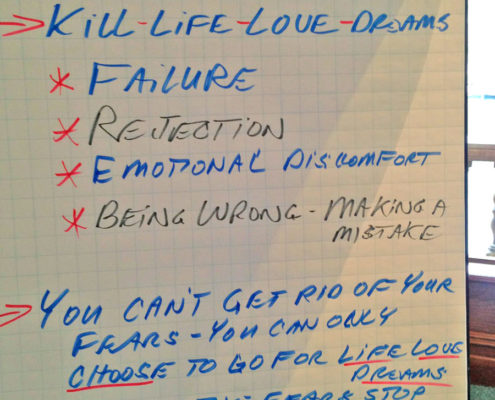 → KILL-LIFE-LOVE-DREAMS
* FAILURE
* REJECTION
* EMOTIONAL DISCOMFORT
* BEING WRONG - MAKING A
MISTAKE
→ YOU CAN'T GET RID OF YOUR
FEARS - YOU CAN ONLY
CHOOSE TO GO FOR LIFE LOVE
DREAMS
FEARS STOP